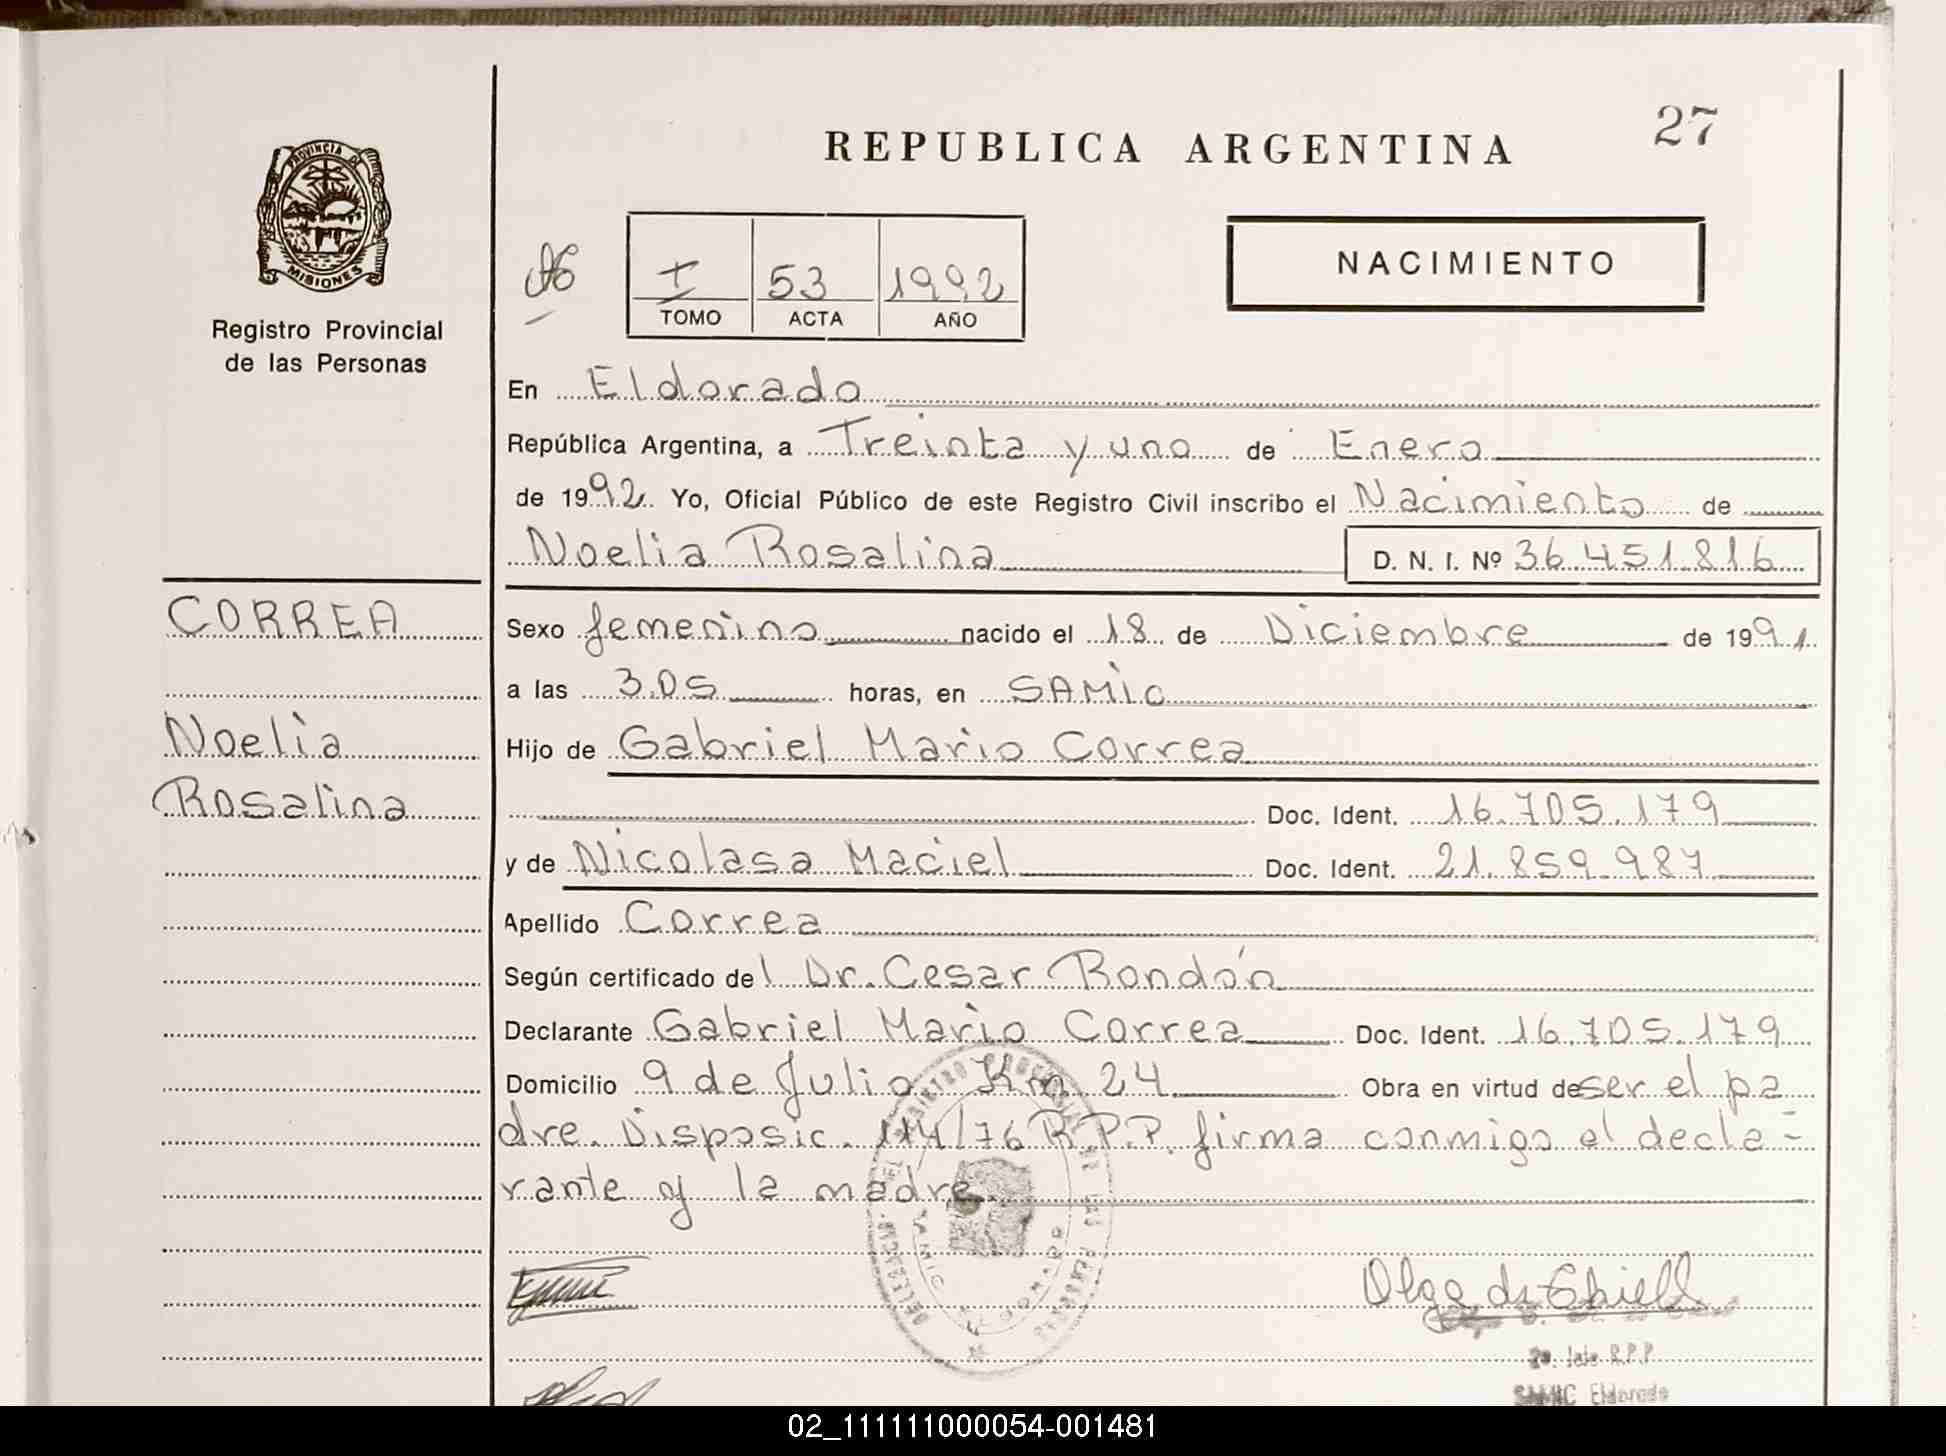 27
REPUBLICA ARGENTINA
PROVINCIA DE
MISIONES
Registro Provincial
de las Personas
I 53 1992
TOMO ACTA AÑO
NACIMIENTO
En Eldorado
República Argentina, a Treinta y uno de Enero
de 1992. Yo, Oficial Público de este Registro Civil inscribo el Nacimiento de
Noelia Rosalina D. N. I. Nº 36.451.816
CORREA
Noelia
Rosalina
Sexo femenino nacido el 18 de Diciembre de 1991.
a las 3.05 horas, en SAMIC
Hijo de Gabriel Mario Correa
Doc. Ident. 16.705.179
y de Nicolasa Maciel Doc. Ident. 21.859.987
Apellido Correa
Según certificado del Dr. Cesar Rondón
Declarante Gabriel Mario Correa Doc. Ident. 16.705.179
Domicilio 9 de Julio Km 24 Obra en virtud de ser el pa
dre. Disposic. 114/76 R.P.P. firma conmigo el decla-
rante y la madre.
Olga de
2a. Jefe R.P.P
SAMIC Eldorado
02_111111000054-001481